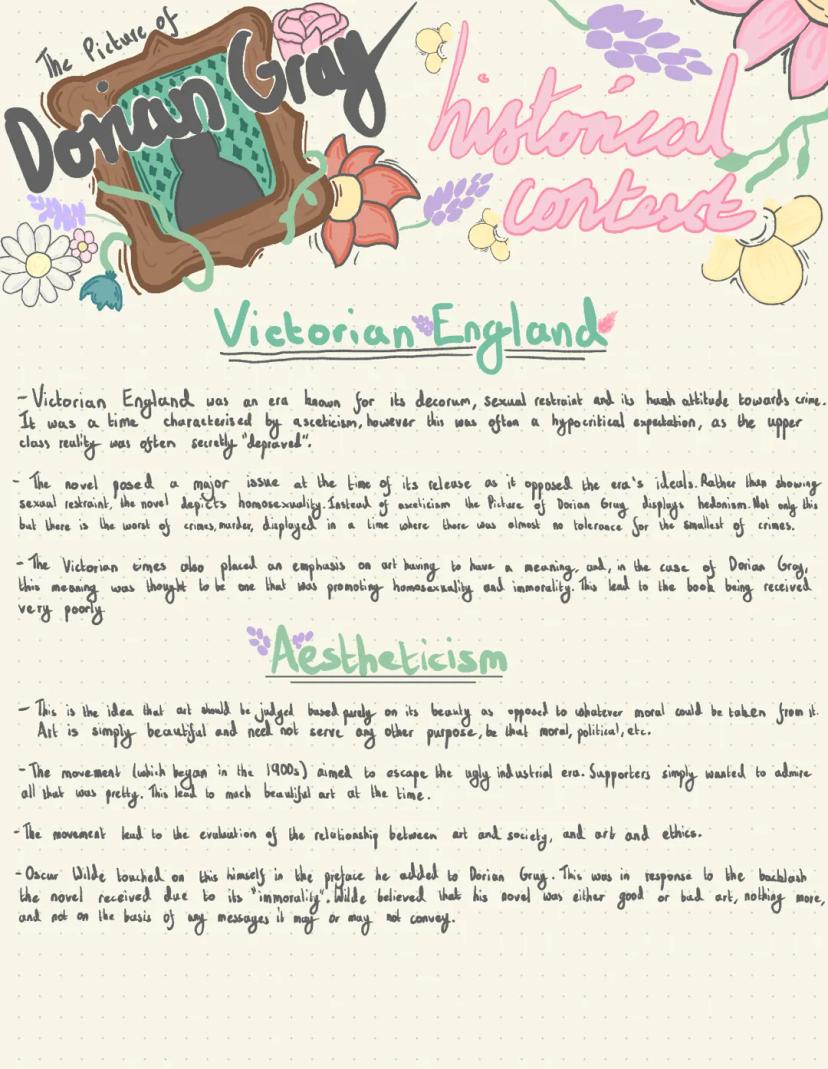 The Picture of
Dorian Gray
historical
context
Victorian England
- Victorian England was an era known for its decorum, sexual restraint and its harsh attitude towards crime.
It was a time characterised by asceticism, however this was often a hypocritical expectation, as the upper
class reality was often secretly "depraved".
- The novel posed a major issue at the time of its release as it opposed the era's ideals. Rather than showing
sexual restraint, the novel depicts homosexuality. Instead of asceticism the Picture of Dorian Gray displays hedonism. Not only this
but there is the worst of crimes, murder, displayed in a time where there was almost no tolerance for the smallest of crimes.
- The Victorian times also placed an emphasis on art having to have a meaning, and, in the case of Dorian Gray,
this meaning was thought to be one that was promoting homosexuality and immorality. This lead to the book being received
very poorly
Aestheticism
- This is the idea that art should be judged based purely on its beauty as opposed to whatever moral could be taken from it.
Art is simply beautiful and need not serve any other purpose, be that moral, political, etc.
- The movement (which began in the 1900s) aimed to escape the ugly industrial era. Supporters simply wanted to admire
all that was pretty. This lead to much beautiful art at the time.
- The movement lead to the evaluation of the relationship between art and society, and art and ethics.
- Oscar Wilde touched on this himself in the preface he added to Dorian Gray. This was in response to the backlash
the novel received due to its "immorality". Wilde believed that his novel was either good or bad art, nothing more,
and not on the basis of any messages it may or may not convey.